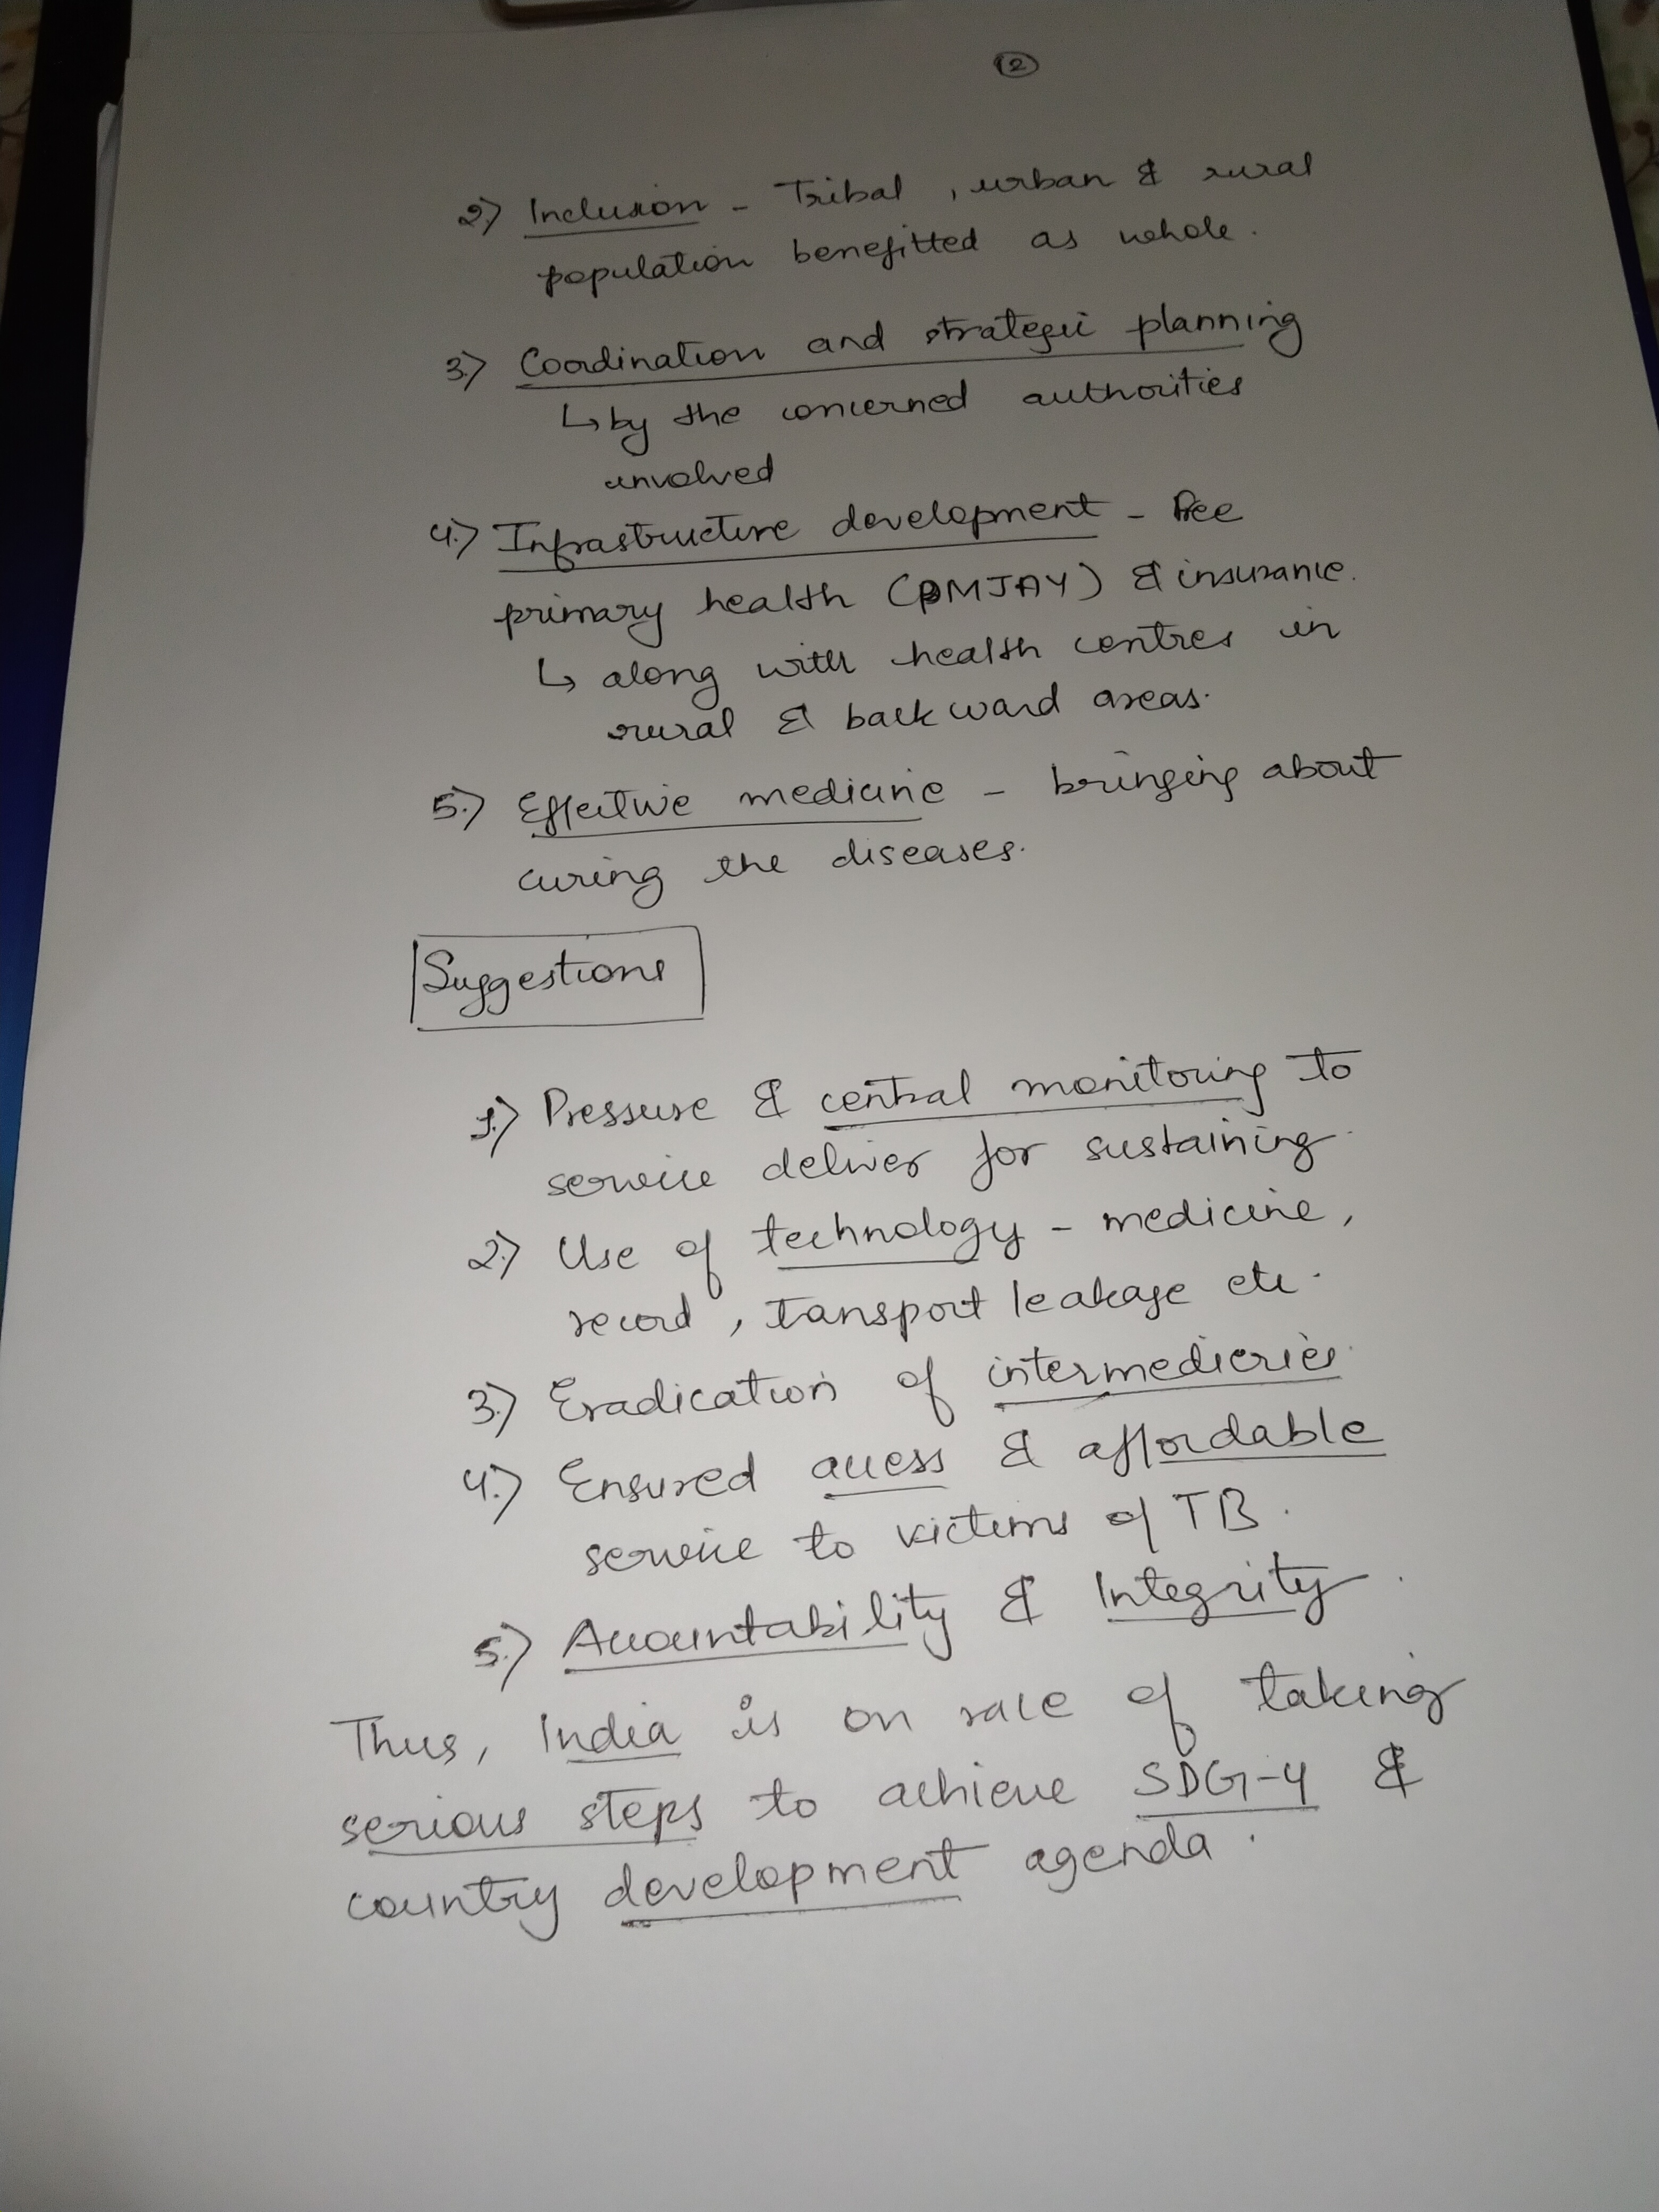 2
2.) Inclusion - Tribal, urban & rural
population benefitted as whole.
3.) Coordination and strategic planning
↳ by the concerned authorities
involved
4.) Infrastructure development - Free
primary health (PMJAY) & insurance.
↳ along with health centres in
rural & backward areas.
5.) Effective medicine - bringing about
curing the diseases.
Suggestions
1.) Pressure & central monitoring to
service deliver for sustaining.
2.) Use of technology - medicine,
record, transport leakage etc.
3.) Eradication of intermedieries.
4.) Ensured access & affordable
service to victims of TB.
5.) Accountability & Integrity.
Thus, India is on race of taking
serious steps to achieve SDG-4 &
country development agenda.